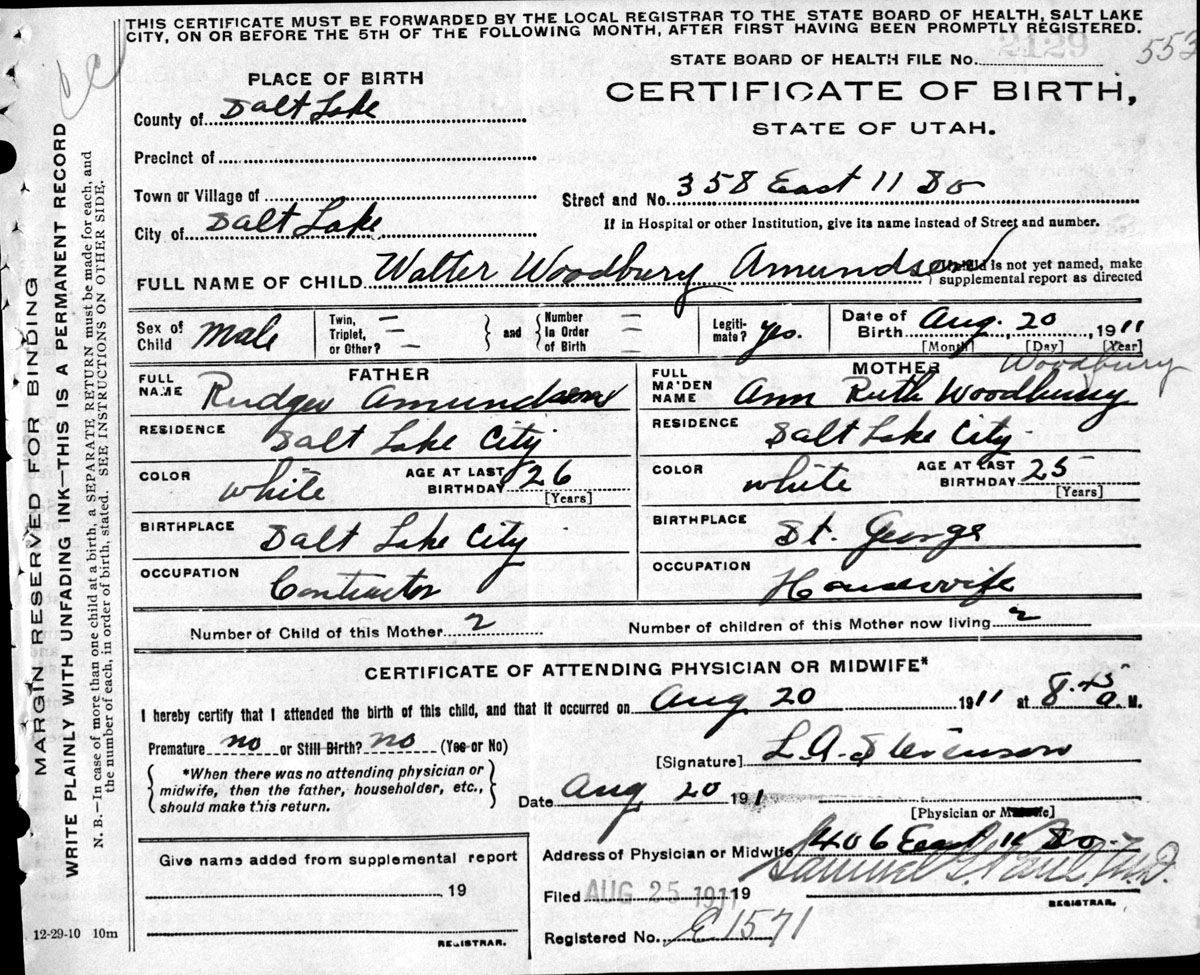 THIS CERTIFICATE MUST BE FORWARDED BY THE LOCAL REGISTRAR TO THE STATE BOARD OF HEALTH, SALT LAKE
CITY, ON OR BEFORE THE 5TH OF THE FOLLOWING MONTH, AFTER FIRST HAVING BEEN PROMPTLY REGISTERED.
STATE BOARD OF HEALTH FILE No. 553
CERTIFICATE OF BIRTH,
STATE OF UTAH.
PLACE OF BIRTH
County of Salt Lake
Precinct of
Town or Village of
City of Salt Lake
Street and No. 358 East 11 So
If in Hospital or other Institution, give its name Instead of Street and number.
FULL NAME OF CHILD Walter Woodbury Amundsen
is not yet named, make
supplemental report as directed
Sex of Child Male
Twin, Triplet, or Other? —
and
Number In Order of Birth —
Legiti- mate? yes.
Date of Birth Aug. 20, 1911
[Month] [Day] [Year]
FATHER
FULL NAME Rudger Amundsen
RESIDENCE Salt Lake City
COLOR white
AGE AT LAST BIRTHDAY 26
[Years]
BIRTHPLACE Salt Lake City
OCCUPATION Contractor
MOTHER Woodbury
FULL MAIDEN NAME Ann Ruth Woodbury
RESIDENCE Salt Lake City
COLOR white
AGE AT LAST BIRTHDAY 25
[Years]
BIRTHPLACE St. George
OCCUPATION Housewife
Number of Child of this Mother 2
Number of children of this Mother now living 2
CERTIFICATE OF ATTENDING PHYSICIAN OR MIDWIFE*
I hereby certify that I attended the birth of this child, and that it occurred on Aug 20 1911 at 8.45 a. M.
Premature no or Still Birth? no (Yes or No)
*When there was no attending physician or
midwife, then the father, householder, etc.,
should make this return.
[Signature] L. A. Stevenson
Date Aug 20 191
[Physician or Midwife]
Address of Physician or Midwife 406 East 11 So.
Give name added from supplemental report
19
REGISTRAR.
Filed AUG 25 1911 19
REGISTRAR.
Registered No. E 1571
12-29-10 10m
MARGIN RESERVED FOR BINDING
WRITE PLAINLY WITH UNFADING INK—THIS IS A PERMANENT RECORD
N. B.—In case of more than one child at a birth, a SEPARATE RETURN must be made for each, and
the number of each, in order of birth, stated. SEE INSTRUCTIONS ON OTHER SIDE.